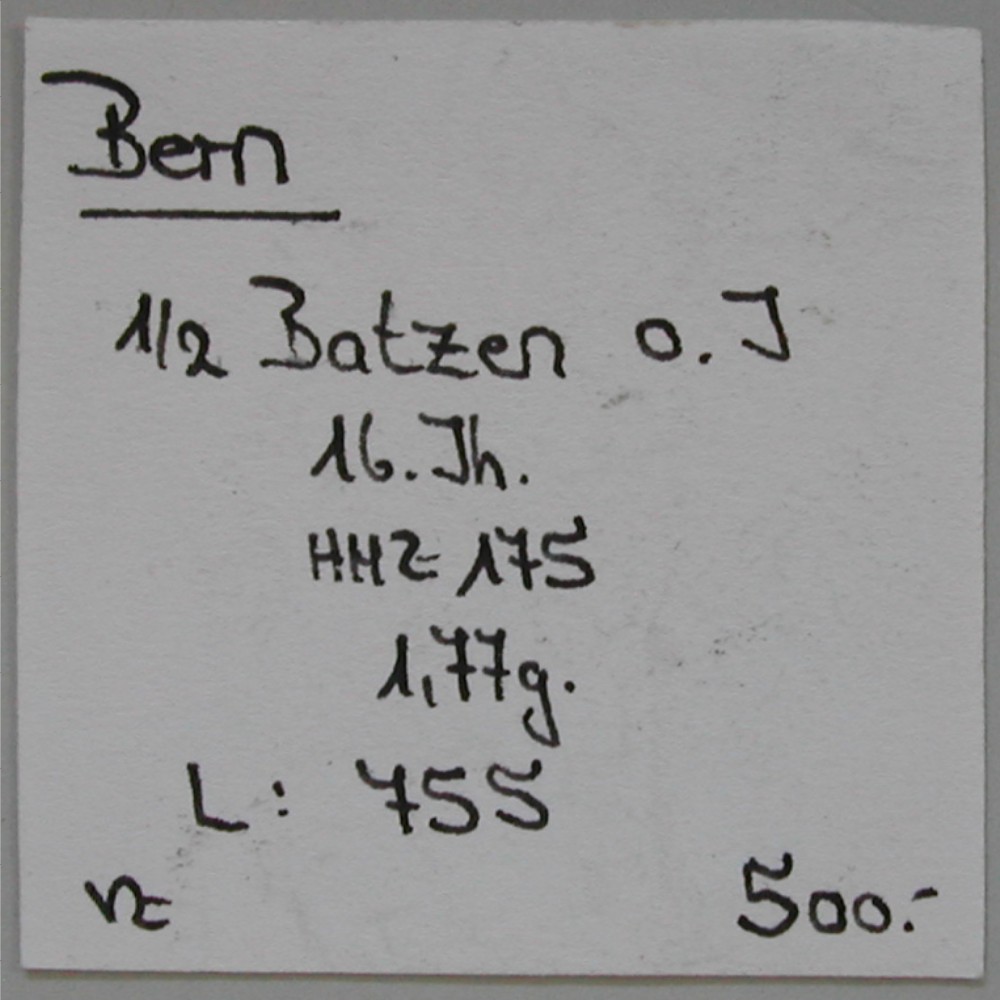 Bern
1/2 Batzen o. J
16. Jh.
HMZ 175
1,77g.
L: 755
vz 500.-